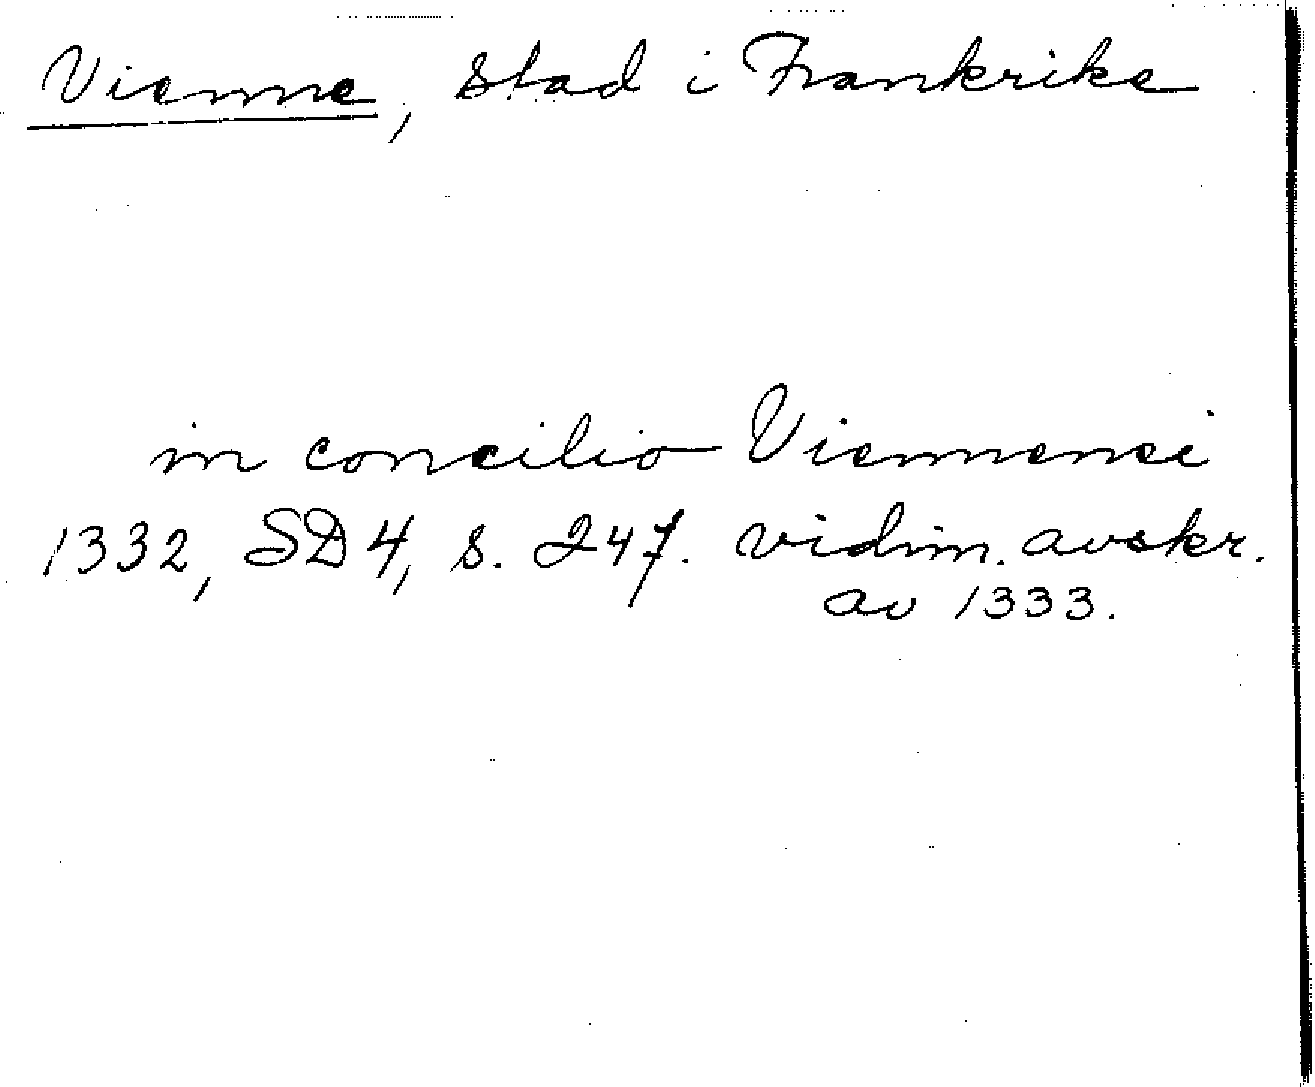 Vienne, stad i Frankrike
in concilio Viennensi
1332, SD 4, s. 247. vidim. avskr.
av 1333.